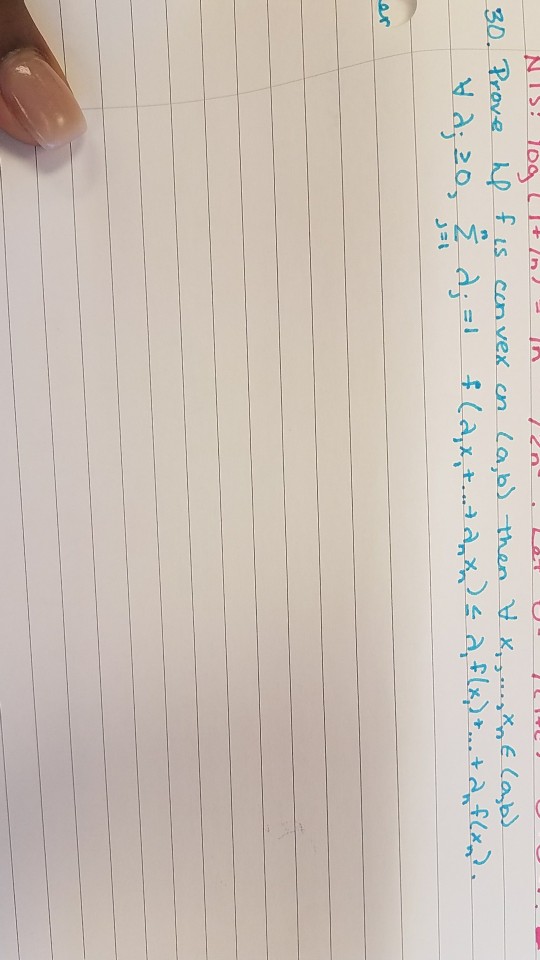 NTS: log(1+1/n) = 1/n
30. Prove if f is convex on (a,b) then ∀ x₁,...,xₙ ∈ (a,b)
∀ λⱼ ≥0, Σⁿⱼ₌₁ λⱼ =1 f(λ₁x₁+...+λₙxₙ) ≤ λ₁f(x₁)+...+λₙf(xₙ).
er